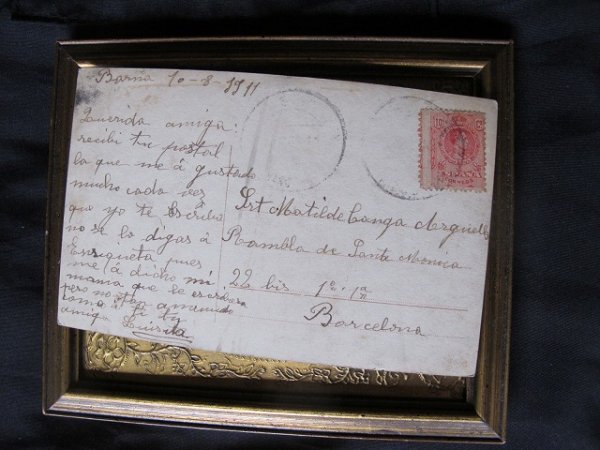 Barna 10-8-1911
Querida amiga:
recibi tu postal
la que me á gustado
mucho cada vez
que yo te escriba
no se lo digas á
Enriqueta pues
me á dicho mi
mama que se escribiera
pero no
tu
amiga Luisita
Srt Matilde Canga Arguelle
Rambla de Santa Monica
22 bis 1º 1ª
Barcelona
10 Cs
ESPAÑA